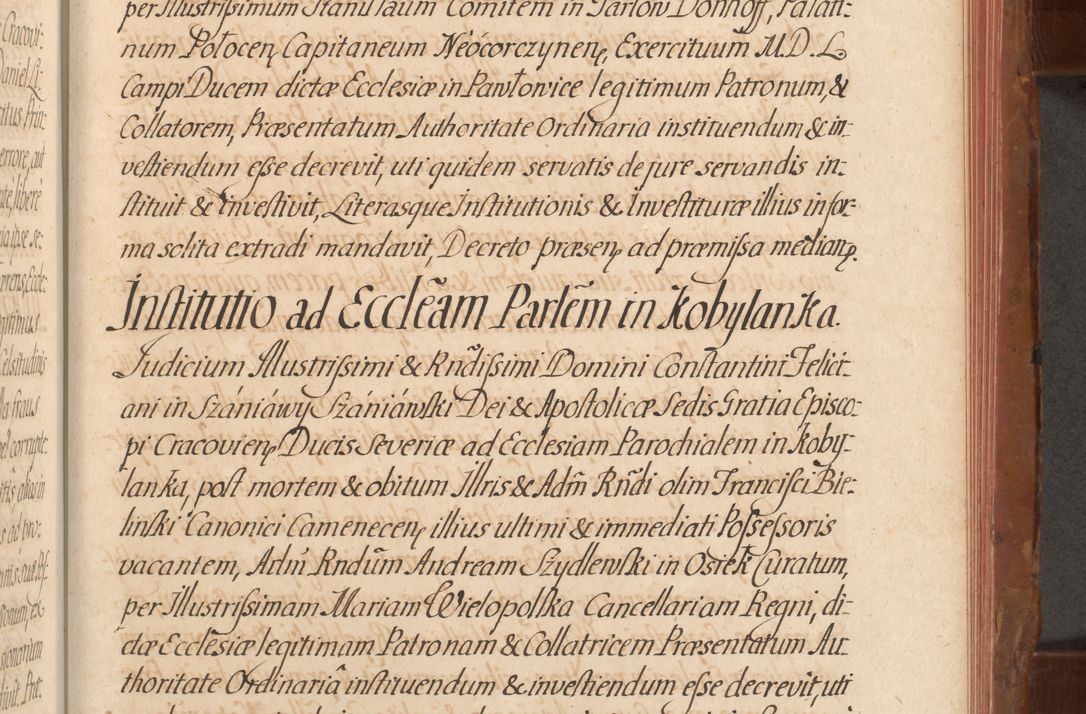 per Illustrissimum Stanislaum Comitem in Tarlow Donhoff, Palati-
num Połocen, Capitaneum Neocorczynen, Exercituum M.D.L.
Campi Ducem dictæ Ecclesiæ in Pawłowice legitimum Patronum, &
Collatorem, Præsentatum Authoritate Ordinaria instituendum & in-
vestiendum esse decrevit, uti quidem servatis de jure servandis in-
stituit & investivit, Literasque Institutionis & Investituræ illius in for-
ma solita extradi mandavit, Decreto præsen ad præmissa median.
Institutio ad Ecclēam Parlēm in Kobylanka.
Judicium Illustrissimi & Rndissimi Domini Constantini Felici-
ani in Szániáwy Szániáwski Dei & Apostolicæ Sedis Gratia Episco-
pi Cracovien Ducis Severiæ ad Ecclesiam Parochialem in Koby-
lanka, post mortem & obitum Illris & Adm̃ Rñdi olim Francisci Bie-
linski Canonici Camenecen illius ultimi & immediati Possessoris
vacantem, Adm̃ Rndũm Andream Szydlewski in Osiek Curatum,
per Illustrissimam Mariam Wielopolska Cancellariam Regni, di-
ctæ Ecclesiæ legitimam Patronam & Collatricem Præsentatum Au-
thoritate Ordinariâ instituendum & investiendum esse decrevit, uti